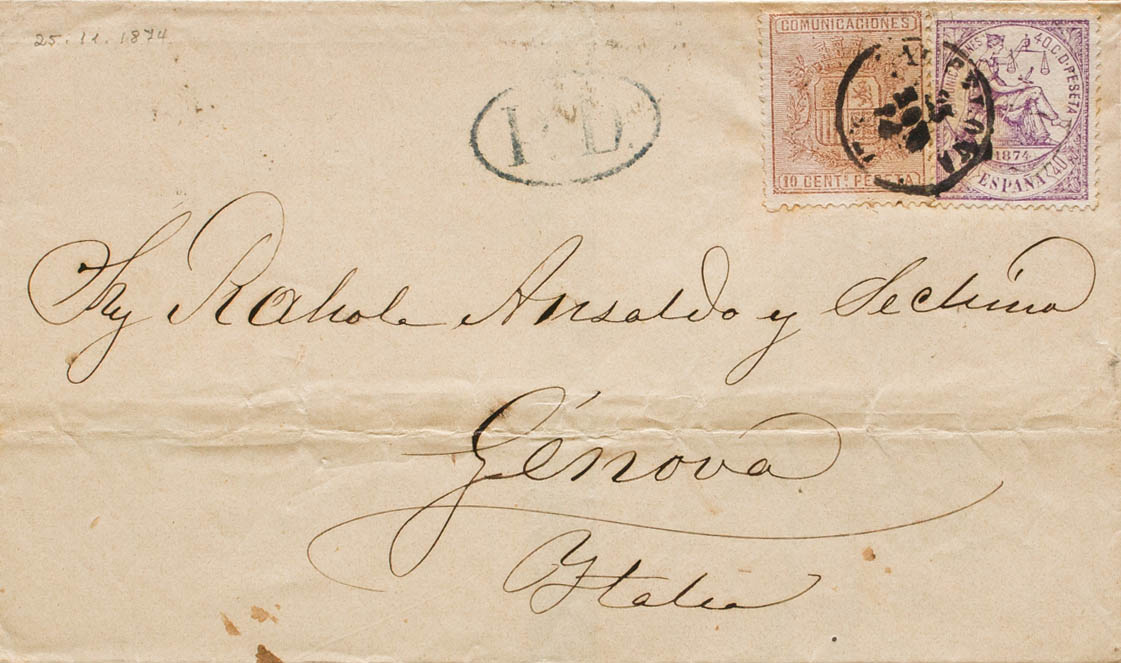 25.11.1874
COMUNICACIONES
10 CENTS PESETA
40 C. D. PESETA
1874
ESPAÑA
40
P.D.
Rahola Ansaldo y
Génova
Ytalia